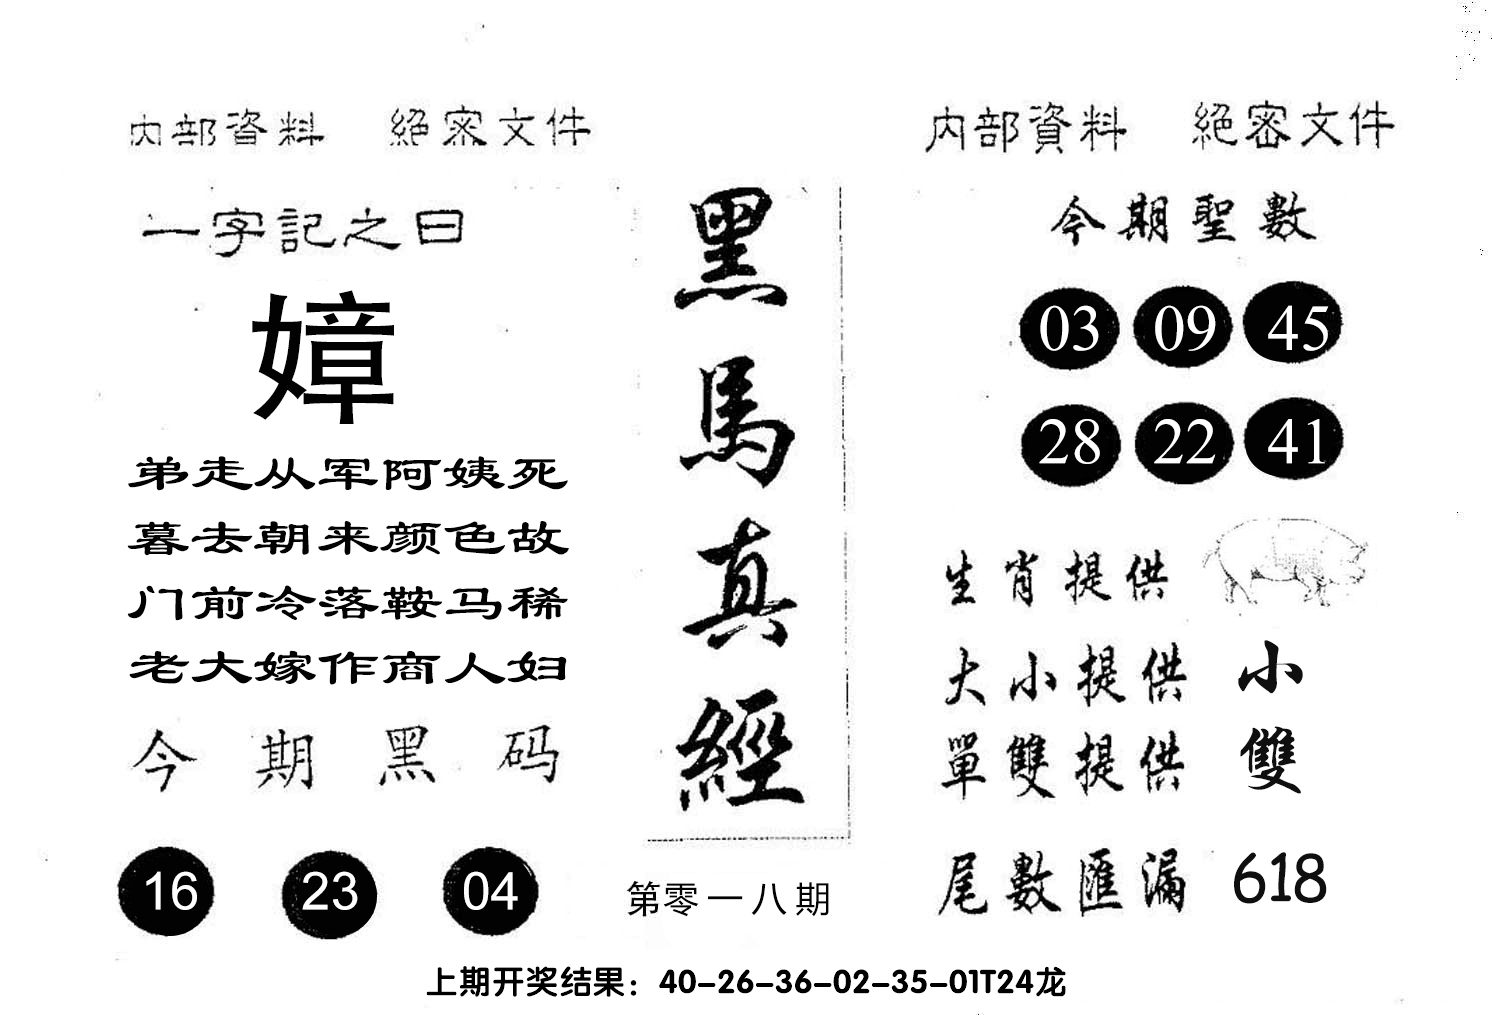 内部資料 絕密文件
一字記之曰
嫜
弟走从军阿姨死
暮去朝来颜色故
门前冷落鞍马稀
老大嫁作商人妇
今期黑码
16 23 04
黑馬真經
第零一八期
内部資料 絕密文件
今期聖數
03 09 45
28 22 41
生肖提供
大小提供 小
單雙提供 雙
尾數匯漏 618
上期开奖结果：40-26-36-02-35-01T24龙